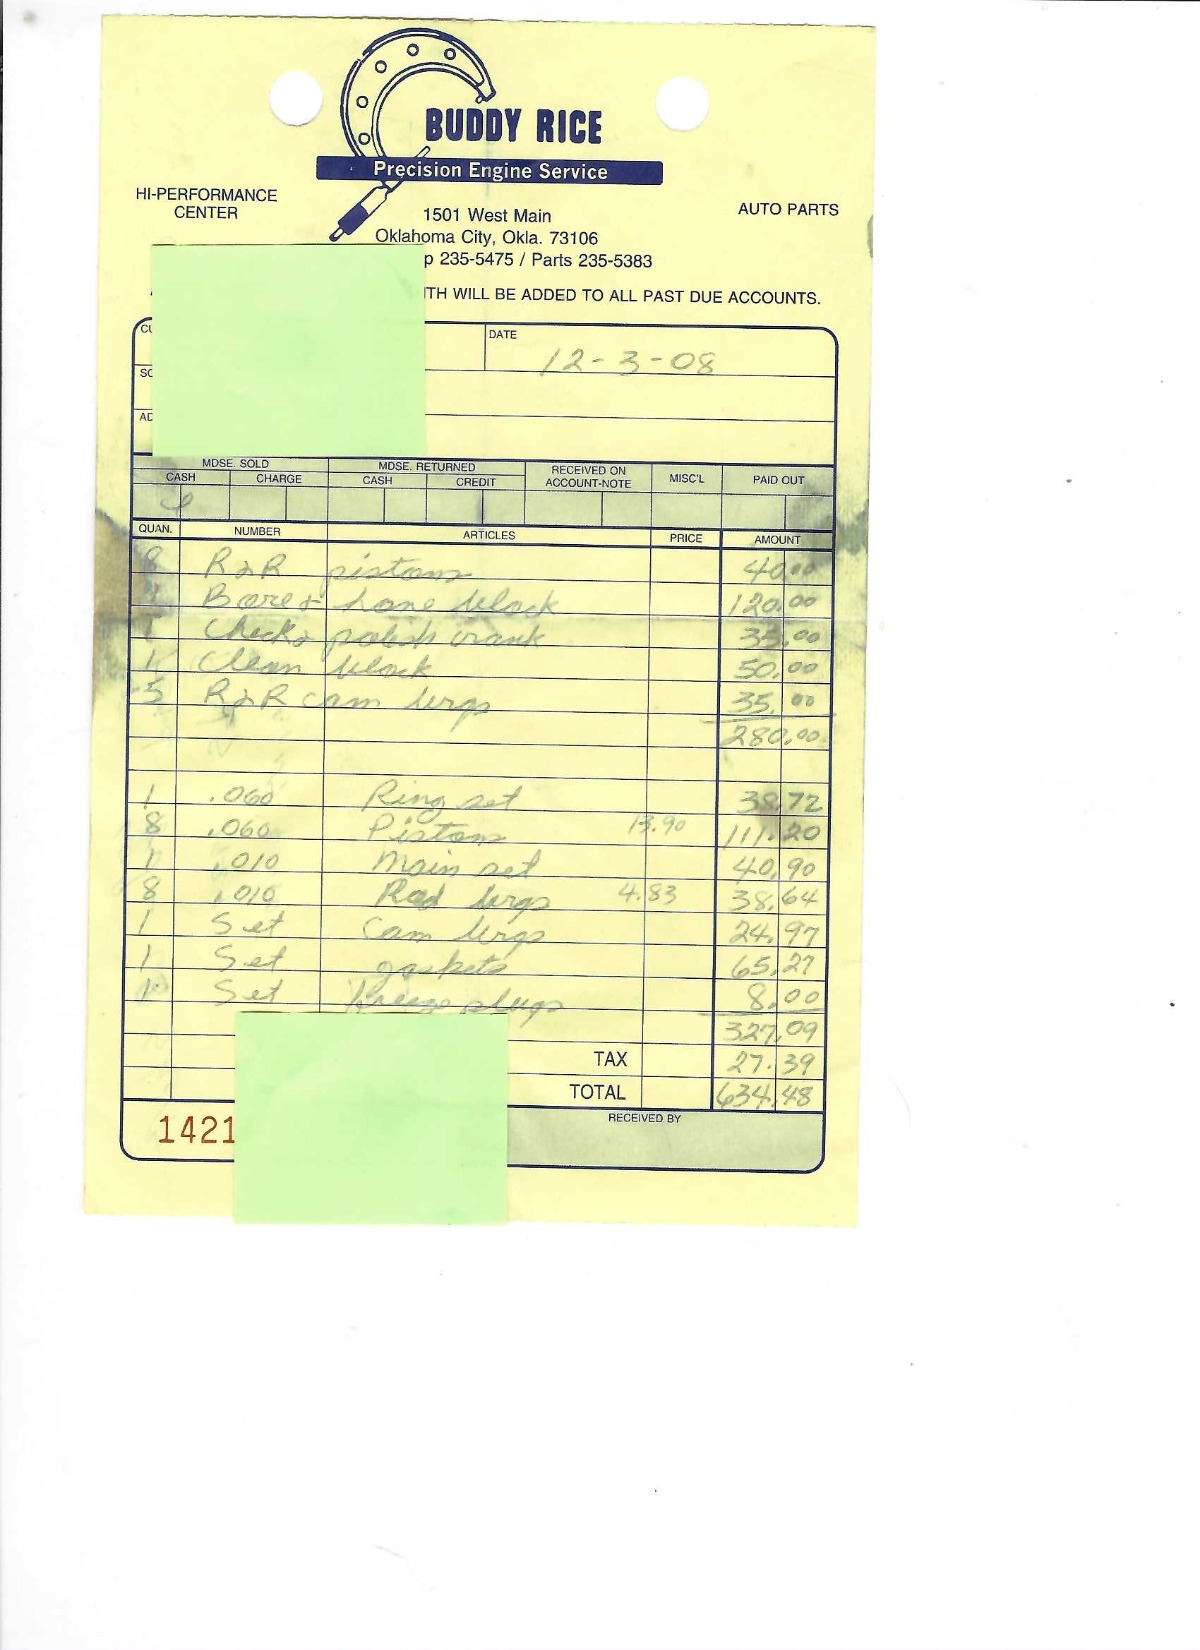 BUDDY RICE
Precision Engine Service
HI-PERFORMANCE CENTER
AUTO PARTS
1501 West Main
Oklahoma City, Okla. 73106
p 235-5475 / Parts 235-5383
TH WILL BE ADDED TO ALL PAST DUE ACCOUNTS.
DATE
12-3-08
MDSE. SOLD MDSE. RETURNED RECEIVED ON ACCOUNT-NOTE MISC'L PAID OUT
CASH CHARGE CASH CREDIT
QUAN. NUMBER ARTICLES PRICE AMOUNT
8 R&R pistons 40.00
Bore & hone block 120.00
1 Check & polish crank 35.00
1 Clean block 50.00
5 R&R cam brgs 35.00
280.00
1 .060 Ring set 38.72
8 .060 Pistons 13.90 111.20
1 .010 Main set 40.90
8 .010 Rod brgs 4.83 38.64
1 Set Cam brgs 24.97
1 Set gaskets 65.27
1 Set freeze plugs 8.00
327.09
TAX 27.39
TOTAL 634.48
1421
RECEIVED BY